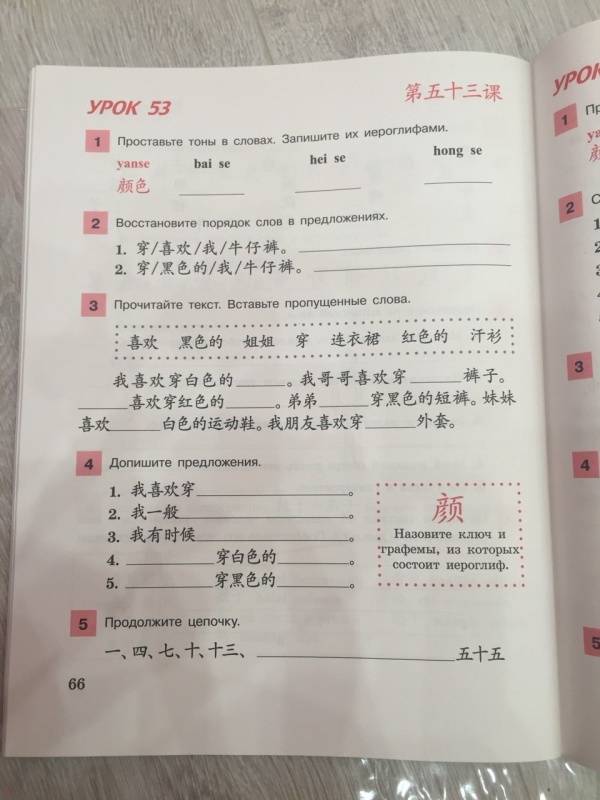 УРОК 53
第五十三课
1 Проставьте тоны в словах. Запишите их иероглифами.
yanse bai se hei se hong se
颜色 ________ ________ ________
2 Восстановите порядок слов в предложениях.
1. 穿/喜欢/我/牛仔裤。 ________
2. 穿/黑色的/我/牛仔裤。 ________
3 Прочитайте текст. Вставьте пропущенные слова.
喜欢 黑色的 姐姐 穿 连衣裙 红色的 汗衫
我喜欢穿白色的______。我哥哥喜欢穿______裤子。
______喜欢穿红色的______。弟弟______穿黑色的短裤。妹妹
喜欢______白色的运动鞋。我朋友喜欢穿______外套。
4 Допишите предложения.
1. 我喜欢穿________。
2. 我一般________。
3. 我有时候________。
4. ________穿白色的________。
5. ________穿黑色的________。
颜
Назовите ключ и
графемы, из которых
состоит иероглиф.
5 Продолжите цепочку.
一、四、七、十、十三、________五十五
66
УРОК
1
2
3
4
5